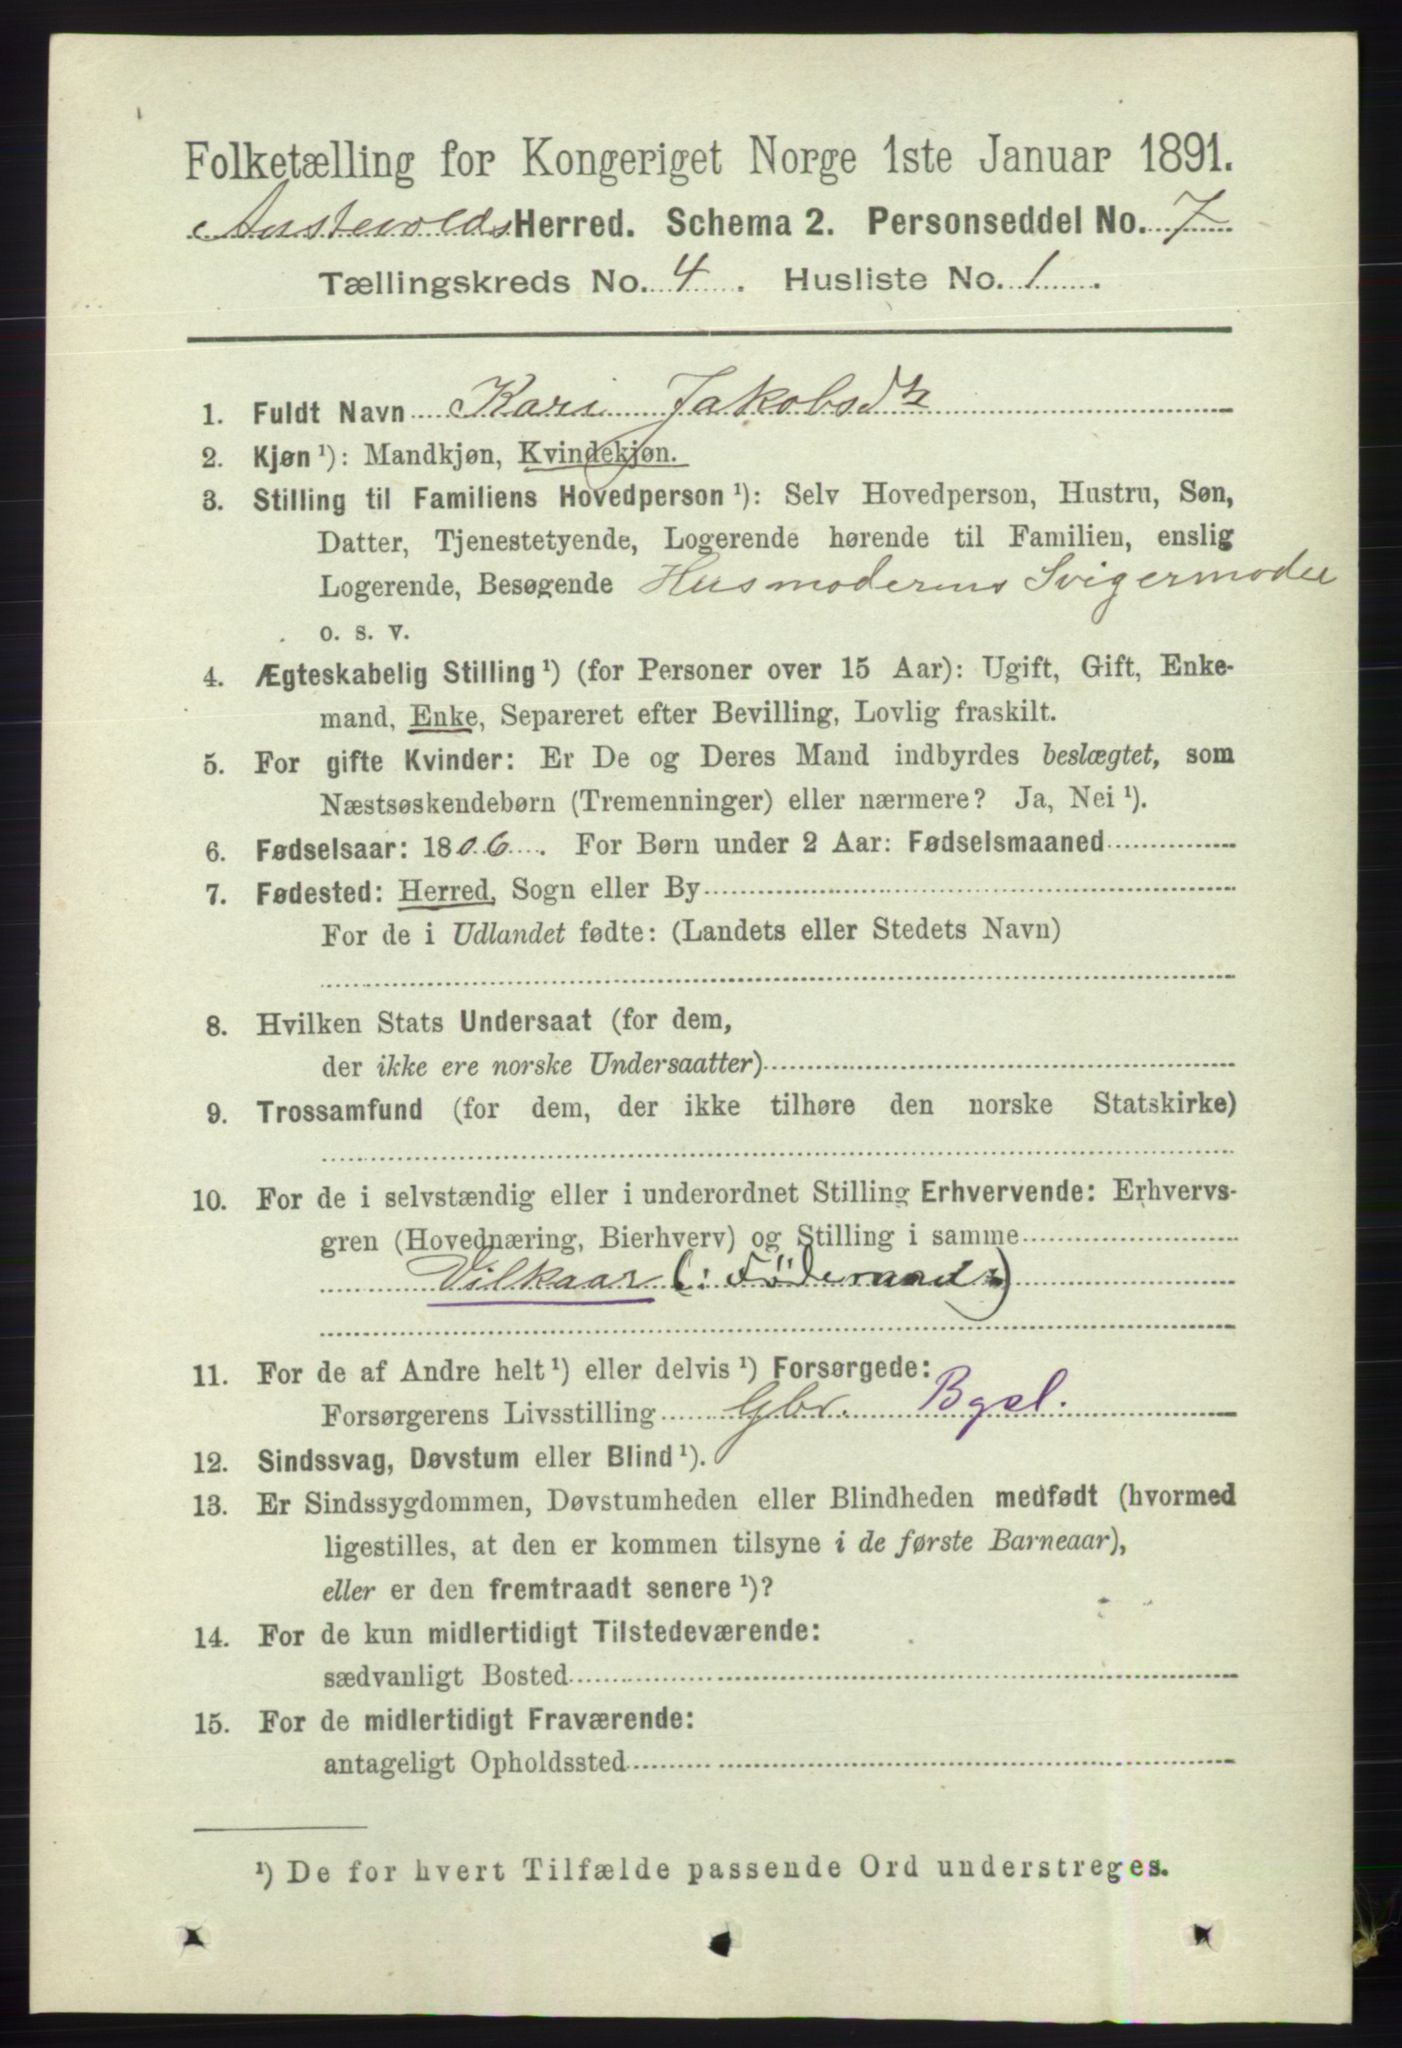 Folketælling for Kongeriget Norge 1ste Januar 1891.
Austevolds Herred. Schema 2. Personseddel No. 7
Tællingskreds No. 4. Husliste No. 1.
1. Fuldt Navn Kari Jakobsdtr
2. Kjøn¹): Mandkjøn, Kvindekjøn.
3. Stilling til Familiens Hovedperson¹): Selv Hovedperson, Hustru, Søn,
Datter, Tjenestetyende, Logerende hørende til Familien, enslig
Logerende, Besøgende Husmoderens Svigermoder
o. s. v.
4. Ægteskabelig Stilling¹) (for Personer over 15 Aar): Ugift, Gift, Enke-
mand, Enke, Separeret efter Bevilling, Lovlig fraskilt.
5. For gifte Kvinder: Er De og Deres Mand indbyrdes beslægtet, som
Næstsøskendebørn (Tremenninger) eller nærmere? Ja, Nei¹).
6. Fødselsaar: 1806. For Børn under 2 Aar: Fødselsmaaned
7. Fødested: Herred, Sogn eller By
For de i Udlandet fødte: (Landets eller Stedets Navn)
8. Hvilken Stats Undersaat (for dem,
der ikke ere norske Undersaatter)
9. Trossamfund (for dem, der ikke tilhøre den norske Statskirke)
10. For de i selvstændig eller i underordnet Stilling Erhvervende: Erhvervs-
gren (Hovednæring, Bierhverv) og Stilling i samme
Vilkaar (: Föderaad:)
11. For de af Andre helt¹) eller delvis¹) Forsørgede:
Forsørgerens Livsstilling Gbr. Bgsl.
12. Sindssvag, Døvstum eller Blind¹).
13. Er Sindssygdommen, Døvstumheden eller Blindheden medfødt (hvormed
ligestilles, at den er kommen tilsyne i de første Barneaar),
eller er den fremtraadt senere¹)?
14. For de kun midlertidigt Tilstedeværende:
sædvanligt Bosted
15. For de midlertidigt Fraværende:
antageligt Opholdssted
¹) De for hvert Tilfælde passende Ord understreges.